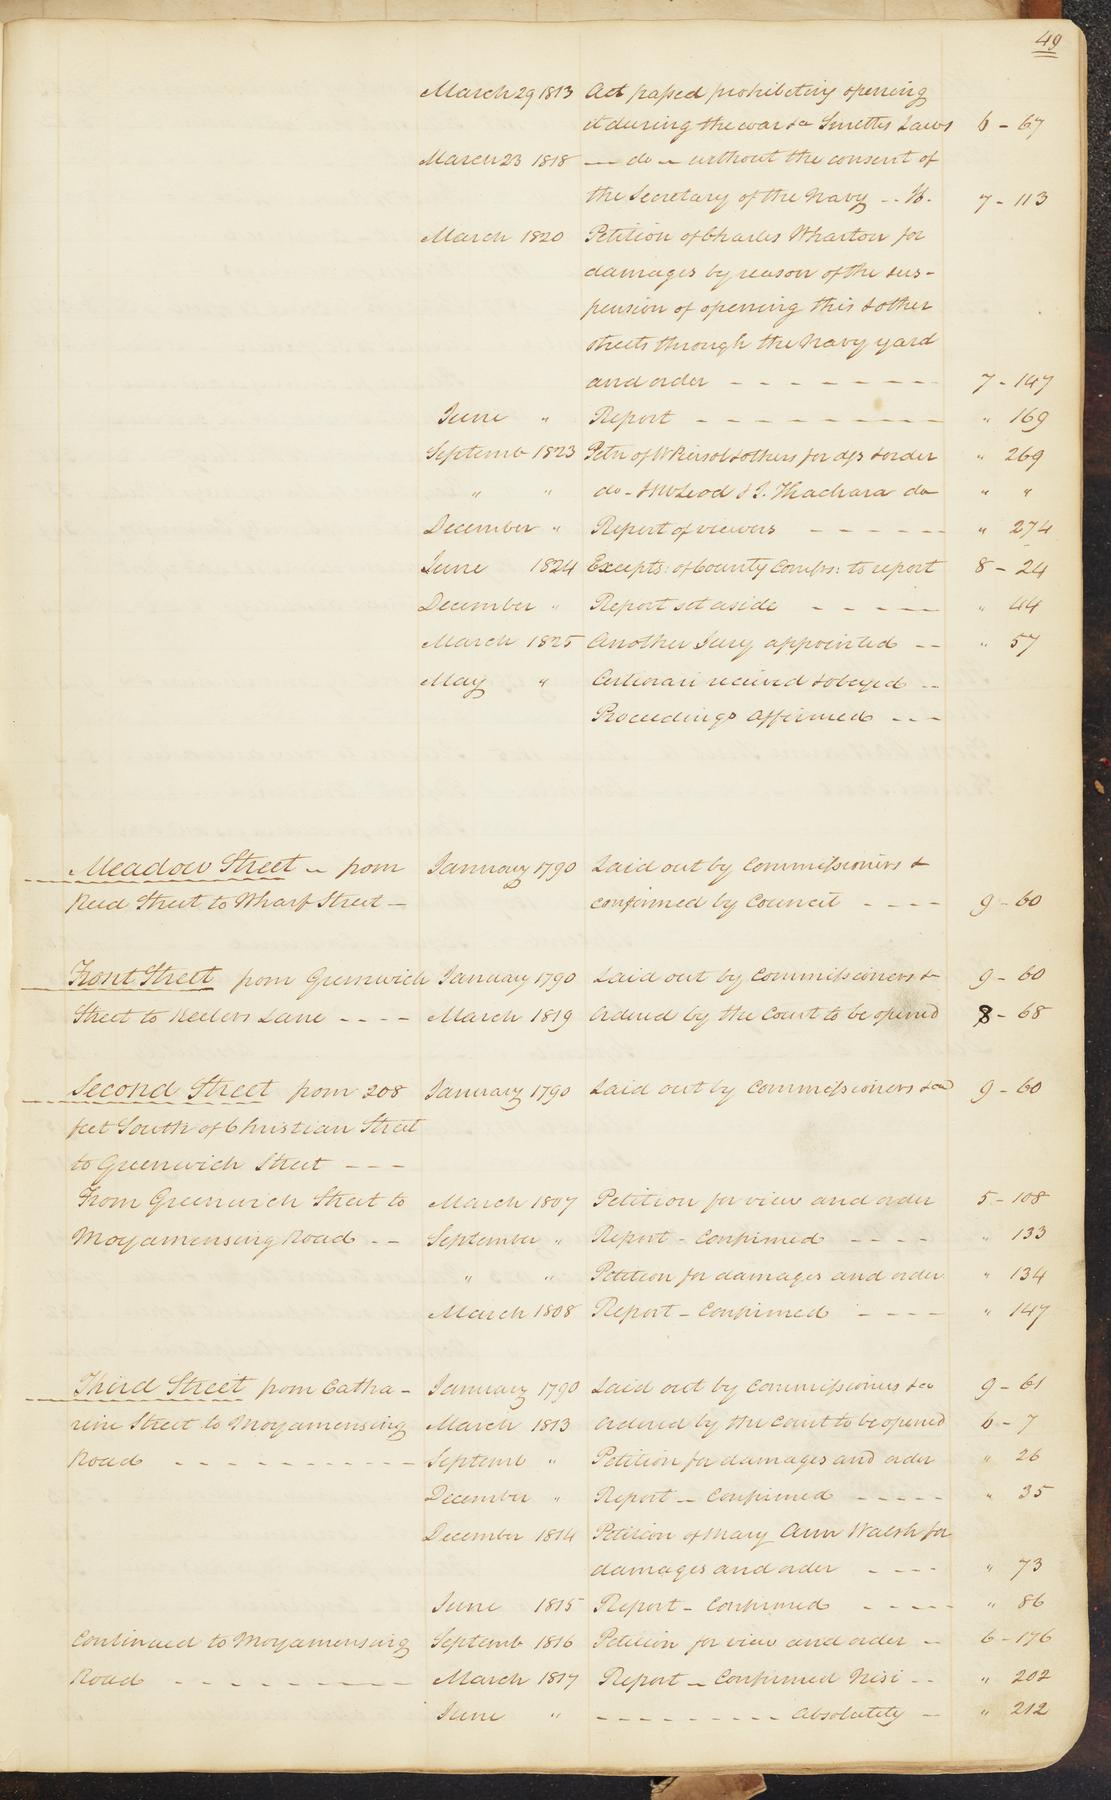 49
March 29 1813 Act passed prohibiting opening
it during the war &c Smiths Laws 6 - 67
March 23 1818 — do — without the consent of
the Secretary of the Navy - - 7 - 113
March 1820 Petition of Charles Wharton for
damages by reason of the sus-
pension of opening this & other
streets through the Navy yard
and order - - - - - - - - 7 - 147
June " Report - - - - - - - - - " 169
Septemb 1823 Petn of & others for & order " 269
" " do - & J. Thackara do " "
December " Report of viewers - - - - - " 274
June 1824 Excepts: of County Comrs: to report 8 - 24
December " Report set aside - - - - - " 44
March 1825 Another Jury appointed - - " 57
May " Certiorari received & obeyed - -
Proceedings affirmed - - -
Meadow Street - from January 1790 Laid out by Commissioners &
Reed Street to Wharf Street — confirmed by Council - - - - 9 - 60
Front Street from Greenwich January 1790 Laid out by Commissioners & 9 - 60
Street to Keelers Lane - - - - March 1819 Ordered by the Court to be opened 8 - 68
Second Street from 208 January 1790 Laid out by Commissioners &ca 9 - 60
feet South of Christian Street
to Greenwich Street - - -
From Greenwich Street to March 1807 Petition for view and order 5 - 108
Moyamensing Road - - September " Report - Confirmed - - - - " 133
" " Petition for damages and order " 134
March 1808 Report - Confirmed - - - - " 147
Third Street from Catha- January 1790 Laid out by Commissioners &ca 9 - 61
rine Street to Moyamensing March 1813 Ordered by the Court to be opened 6 - 7
Road - - - - - - - - - - - Septemb " Petition for damages and order " 26
December " Report - Confirmed - - - - - " 35
December 1814 Petition of Mary Ann Walsh for
damages and order - - - - " 73
June 1815 Report - Confirmed - - - - - " 86
Continued to Moyamensing Septemb 1816 Petition for view and order - 6 - 176
Road - - - - - - - - - March 1817 Report - Confirmed Nisi - - " 202
June " - - - - - - - - - - Absolutely - " 212